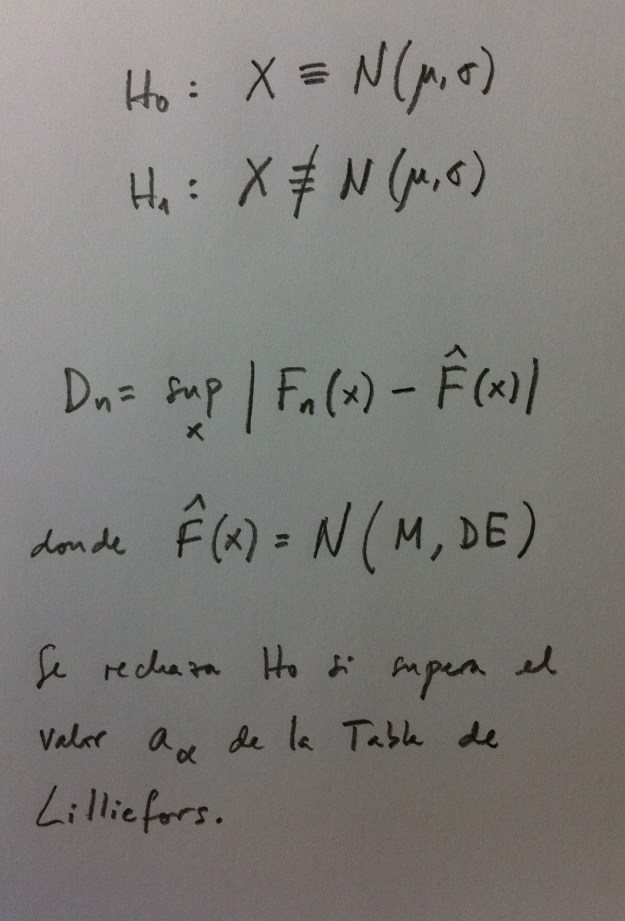 H₀: X ≡ N(μ,σ)
H₁: X ≢ N(μ,σ)
Dn= sup | Fn(x) - F̂(x)|
x
donde F̂(x) = N(M, DE)
Se rechaza H₀ si supera el
valor aα de la Tabla de
Lilliefors.